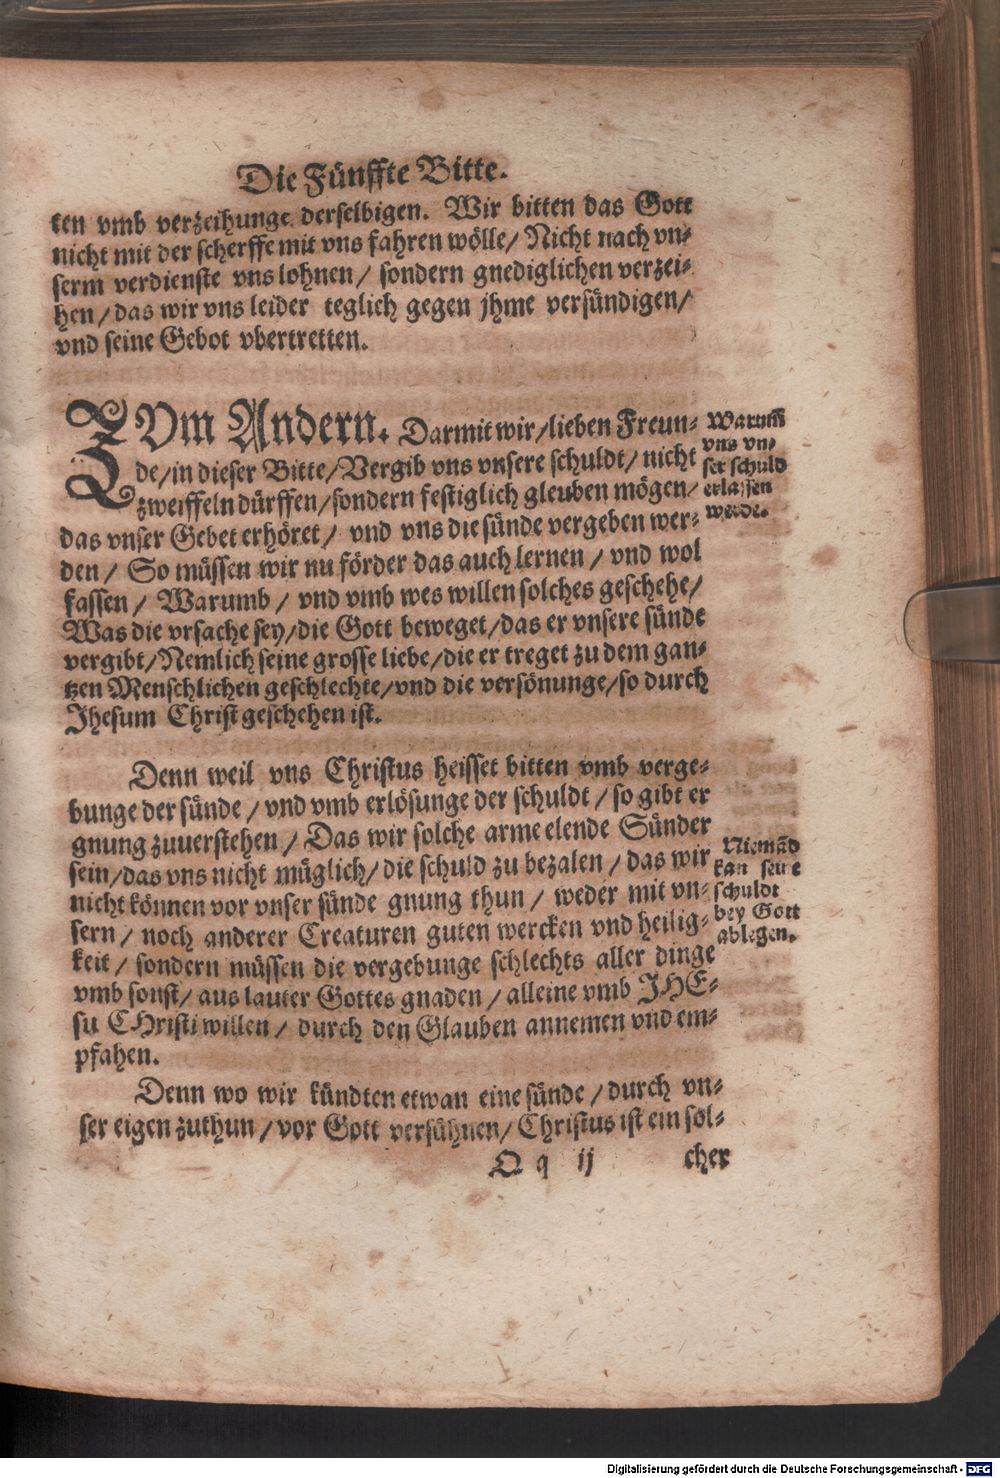 Die Fünffte Bitte.
ten vmb verzeihunge derselbigen. Wir bitten das Gott
nicht mit der scherffe mit vns fahren wölle/ Nicht nach vn-
serm verdienste vns lohnen/ sondern gnediglichen verzei-
hen/ das wir vns leider teglich gegen jhme versündigen/
vnd seine Gebot vbertretten.
ZVm Andern. Darmit wir/ lieben Freun-
de/ in dieser Bitte/ Vergib vns vnsere schuldt/ nicht
zweiffeln dürffen/ sondern festiglich gleuben mögen/
das vnser Gebet erhöret/ vnd vns die sünde vergeben wer-
den/ So müssen wir nu förder das auch lernen/ vnd wol
fassen/ Warumb/ vnd vmb wes willen solches geschehe/
Was die vrsache sey/ die Gott beweget/ das er vnsere sünde
vergibt/ Nemlich seine grosse liebe/ die er treget zu dem gan-
tzen Menschlichen geschlechte/ vnd die versönunge/ so durch
Jhesum Christ geschehen ist.
Warum̃
vns vn-
ser schuld
erlassen
werde.
Denn weil vns Christus heisset bitten vmb verge-
bunge der sünde/ vnd vmb erlösunge der schuldt/ so gibt er
gnung zuuerstehen/ Das wir solche arme elende Sünder
sein/ das vns nicht müglich/ die schuld zu bezalen/ das wir
nicht können vor vnser sünde gnung thun/ weder mit vn-
sern/ noch anderer Creaturen guten wercken vnd heilig-
keit/ sondern müssen die vergebunge schlechts aller dinge
vmb sonst/ aus lauter Gottes gnaden/ alleine vmb JHE-
su CHristi willen/ durch den Glauben annemen vnd em-
pfahen.
Niemãd
kan seine
schuldt
bey Gott
ablegen.
Denn wo wir kündten etwan eine sünde/ durch vn-
ser eigen zuthun/ vor Gott versühnen/ Christus ist ein sol-
Q q ij cher
Digitalisierung gefördert durch die Deutsche Forschungsgemeinschaft - DFG